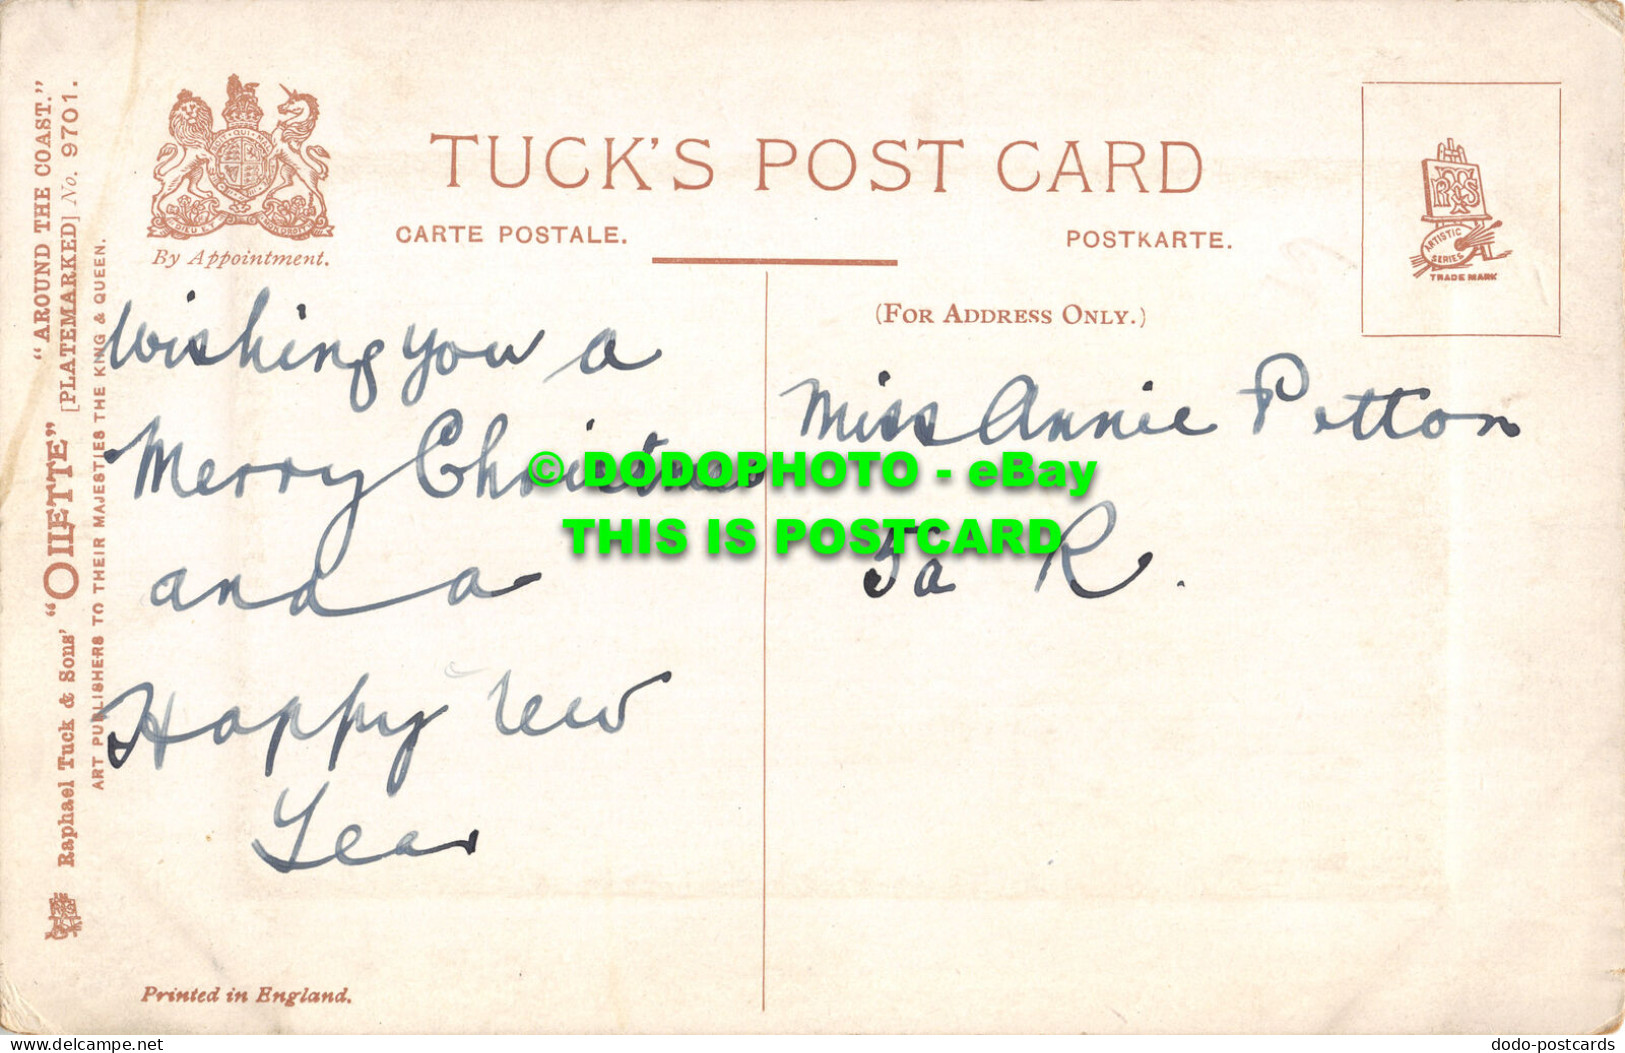 TUCK'S POST CARD
CARTE POSTALE.
POSTKARTE.
By Appointment.
(FOR ADDRESS ONLY.)
ARTISTIC SERIES
TRADE MARK
"AROUND THE COAST."
[PLATEMARKED] No. 9701.
Raphael Tuck & Sons' "OILETTE"
ART PUBLISHERS TO THEIR MAJESTIES THE KING & QUEEN.
Wishing you a
Merry Christmas
and a
Happy New
Year
Miss Annie Petton
5a R.
© DODOPHOTO - eBay
THIS IS POSTCARD
Printed in England.
www.delcampe.net
dodo-postcards